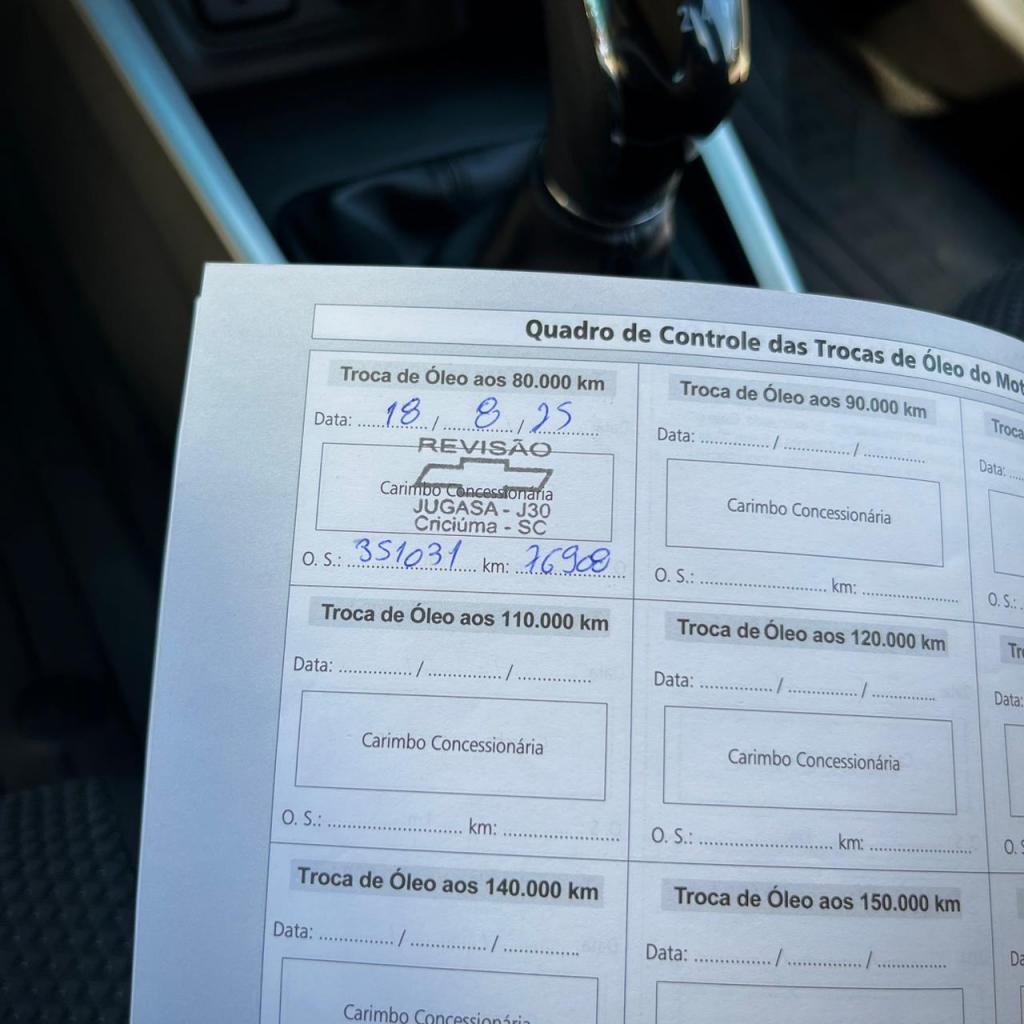 Quadro de Controle das Trocas de Óleo do Mot
Troca de Óleo aos 80.000 km
Data: 18 / 8 / 25
REVISÃO
Carimbo Concessionária
JUGASA - J30
Criciúma - SC
O. S.: 351031 km: 76908
Troca de Óleo aos 90.000 km
Data: ............... / ............... / ..............
Carimbo Concessionária
O. S.: ............................ km: .....................
Troca
Data: ....
O. S.: .
Troca de Óleo aos 110.000 km
Data: ............... / ............... / ...............
Carimbo Concessionária
O. S.: ............................ km: ........................
Troca de Óleo aos 120.000 km
Data: ............... / ............... / .............
Carimbo Concessionária
O. S.: ............................ km: ......................
Tr
Data:
O. S
Troca de Óleo aos 140.000 km
Data: ............... / ............... / ...............
Carimbo Concessionária
Troca de Óleo aos 150.000 km
Data: ............... / ............... / ..............
Da